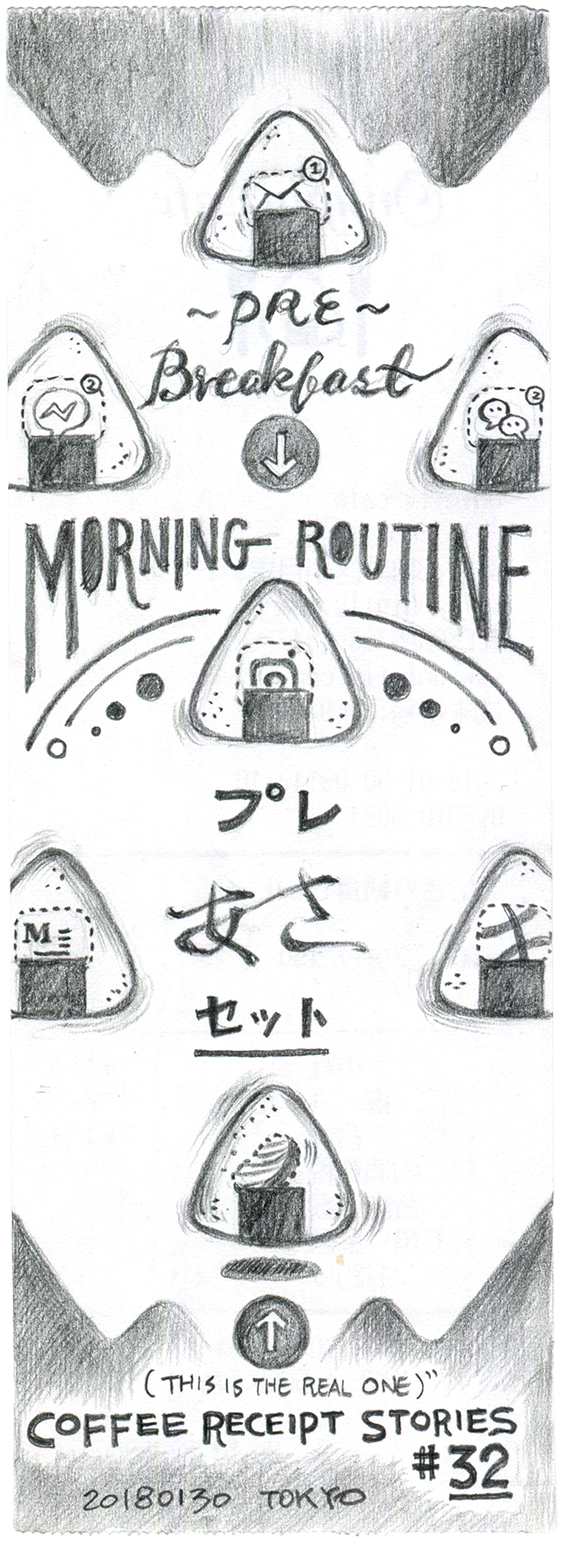 1
~PRE~
Breakfast
2
2
MORNING ROUTINE
プレ
あさ
M
セット
(THIS IS THE REAL ONE)"
COFFEE RECEIPT STORIES
#32
20180130 TOKYO